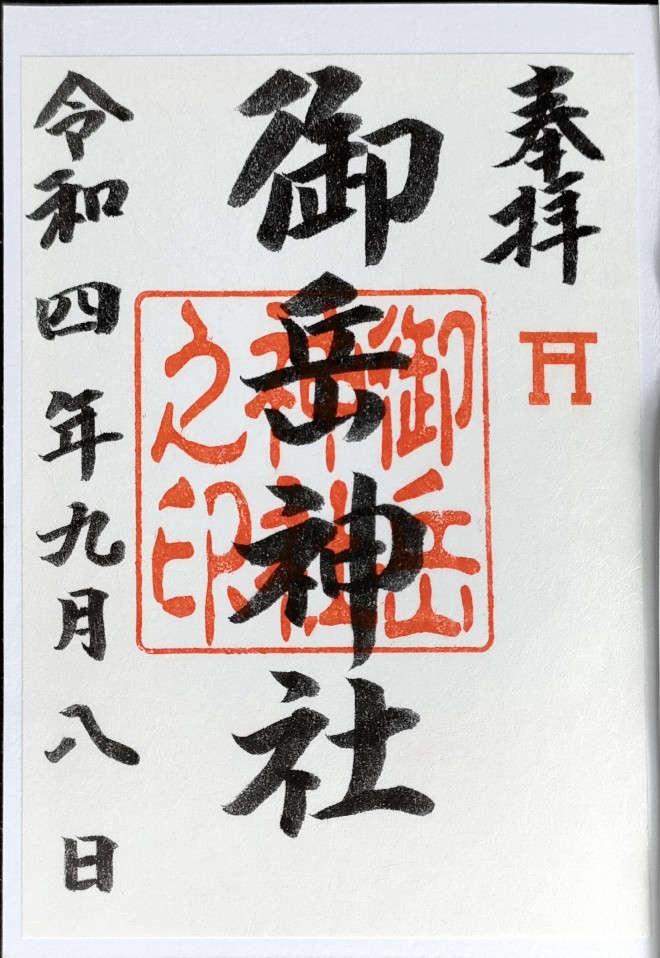 奉拝
御岳神社
御岳神社之印
令和四年九月八日